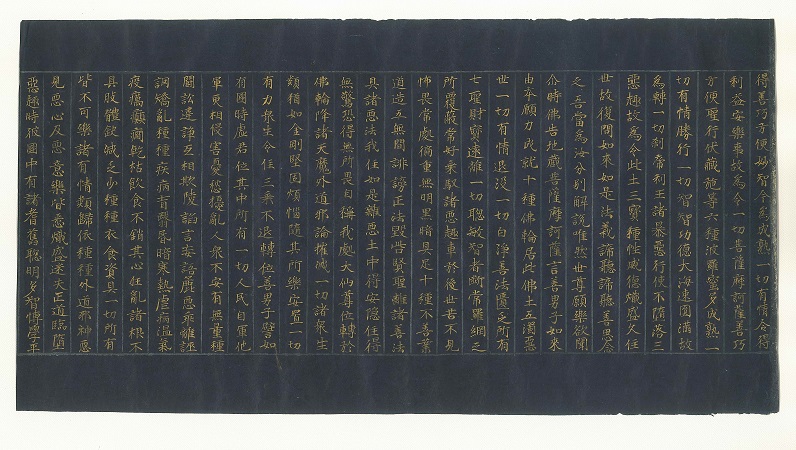 得善巧方便妙智今為成熟一切有情令得
利益安樂事故為令一切菩薩摩訶薩善巧
方便聖行伏藏施等六種波羅蜜多成熟一
切有情勝行一切智智功德大海速圓滿故
為轉一切刹帝利王諸暴惡行使不墮落三
惡趣故為令此土三寶種性威德熾盛久住
世故復問如來如是法義諦聽諦聽善思念
之吾當為汝分別解說唯然世尊願樂欲聞
尒時佛告地藏菩薩摩訶薩言善男子如來
由本願力成就十種佛輪居此佛土五濁惡
世一切有情退沒一切白淨善法匱乏所有
七聖財寶遠離一切聰敏智者斷常羅網之
所覆蔽常好乘馭諸惡趣車於後世苦不見
怖畏常處徧重無明黑暗具足十種不善業
道造五無間誹謗正法毀呰賢聖離諸善法
具諸惡法我住如是雜惡土中得安隱住得
無驚恐得無所畏自稱我處大仙尊位轉於
佛輪降諸天魔外道邪論摧滅一切諸衆生
類猶如金剛堅固煩惱隨其所樂安置一切
有力衆生令住三乘不退轉位善男子譬如
有國時虛君位其中所有一切人民自軍他
軍更相侵害憂愁擾亂人衆不安有無量種
鬪訟違諍互相欺陵諂言妄語麁惡乖離誑
調矯亂種種疾病盲瞖昏暗寒熱虛病溫氣
疫癘癲癎乾枯飲食不銷其心狂亂諸根不
具肢體缺減乏少種種衣食資具一切所有
皆不可樂諸有情類歸依種種外道邪神惡
見惡心及惡意樂皆悉熾盛迷失正道臨墮
惡趣時彼國中有諸耆舊聰明多智博學平